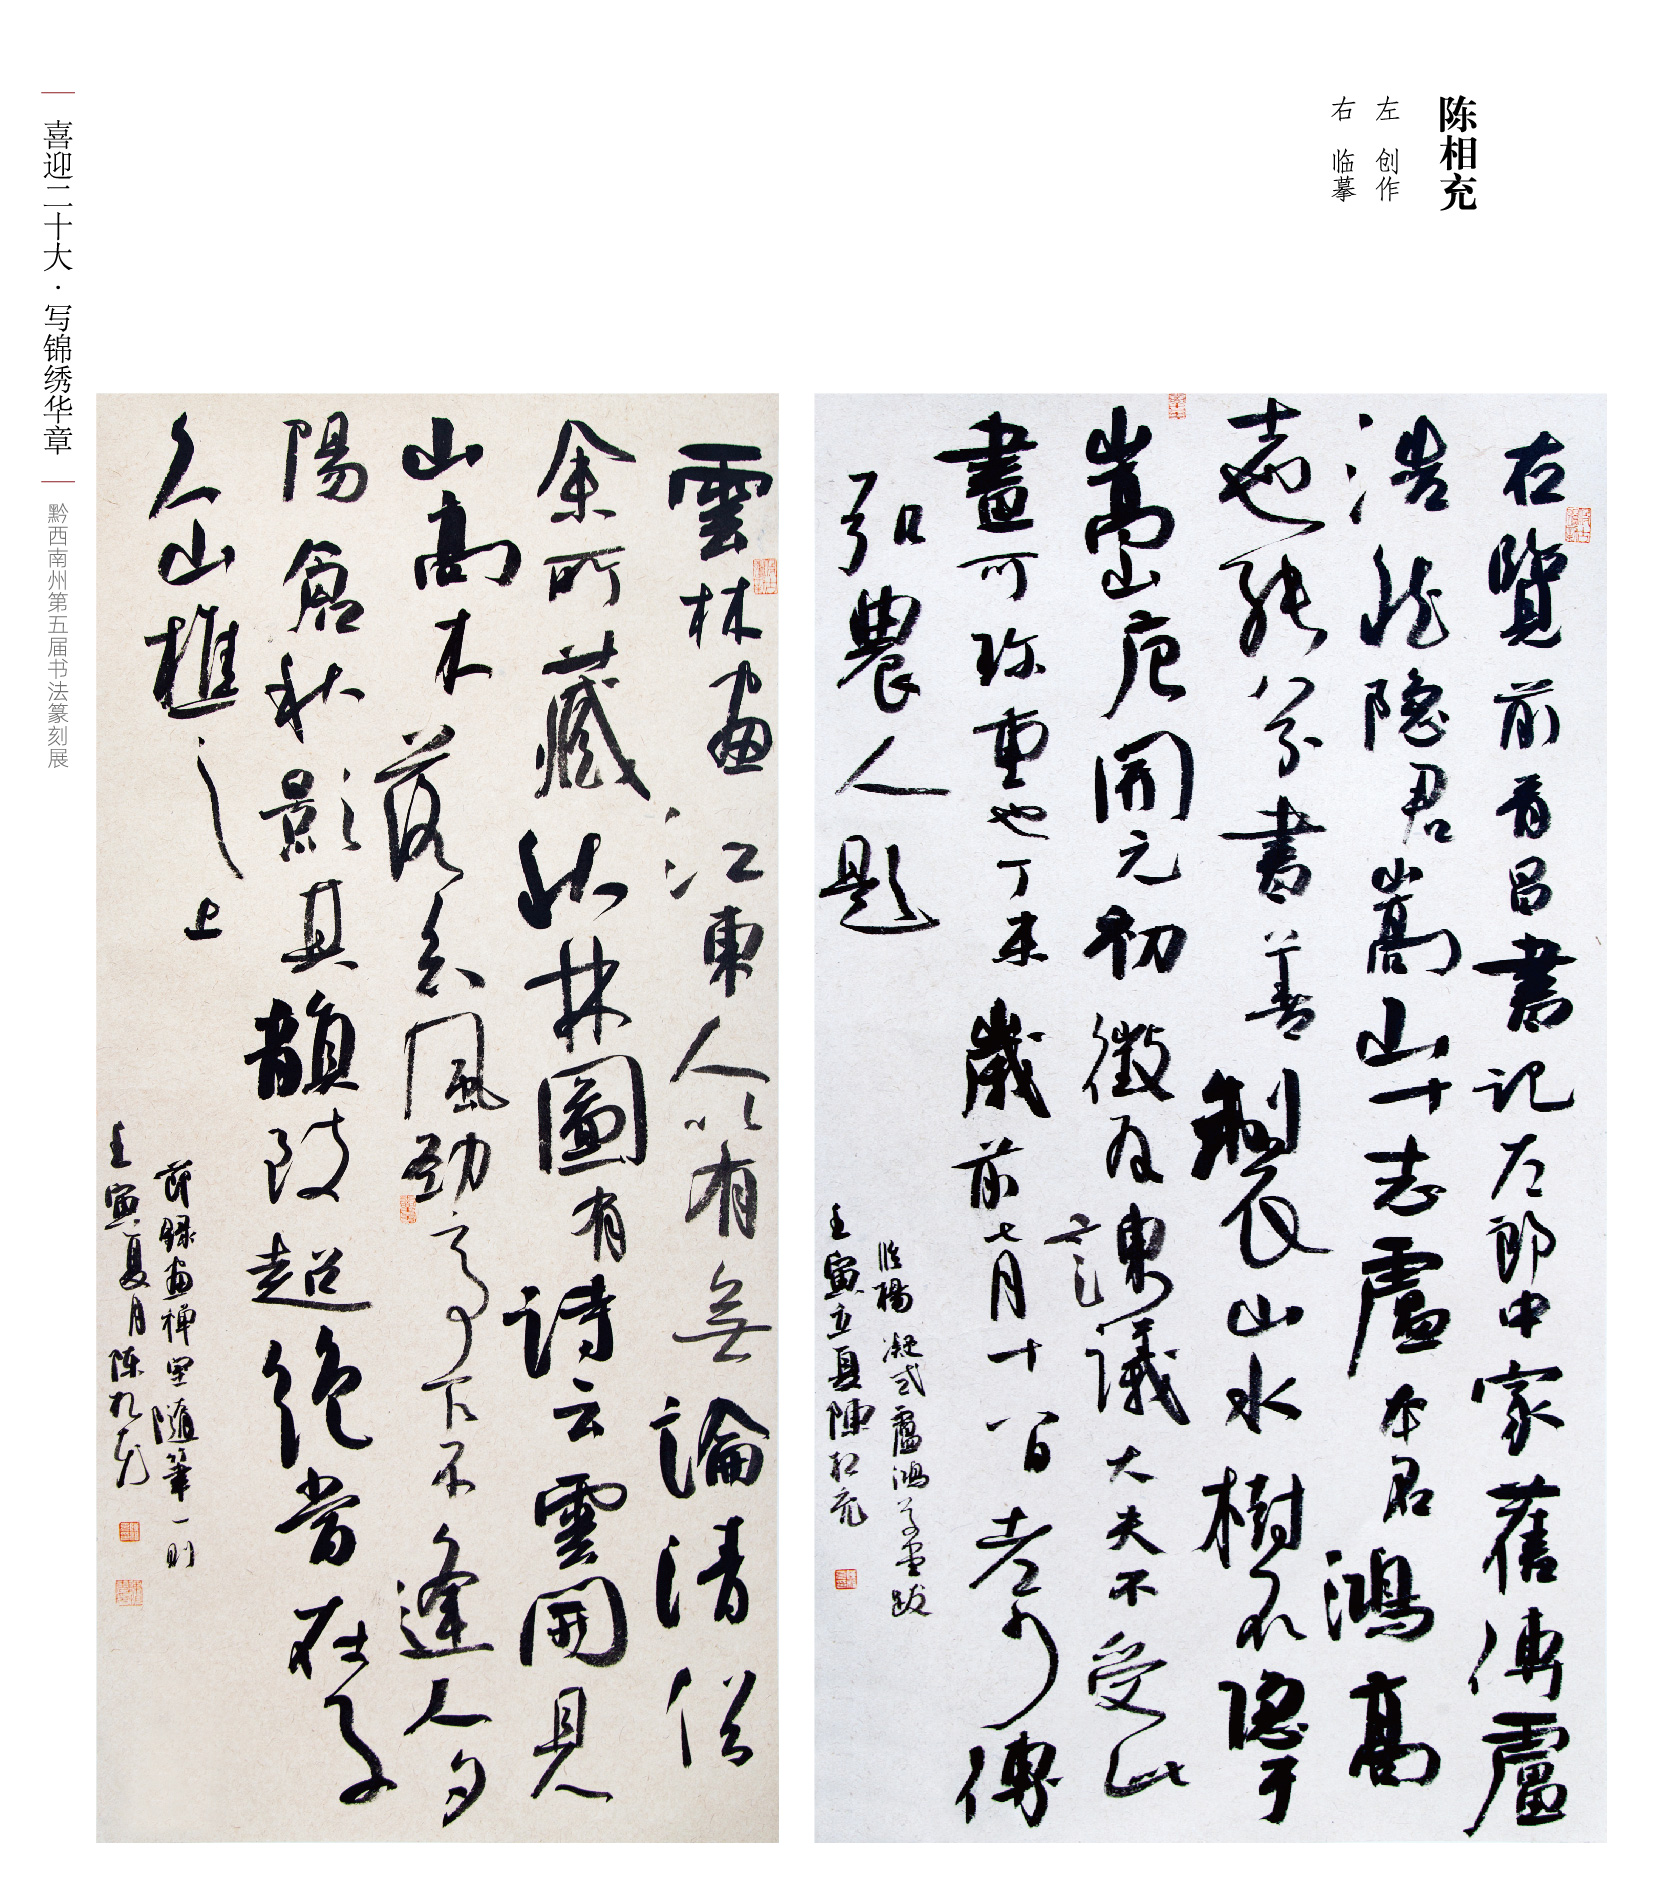 陈相充
左 创作
右 临摹
右覽前晋昌書記左郎中家舊傳盧
浩然隐君嵩山十志盧本名鴻高
士也能八分書善製山水樹石隐于
嵩山唐開元初徵為諫議大夫不受此
畫可珎重也丁未歲前七月十八日老少傅
弘農人題
臨楊凝式盧鴻草堂跋
壬寅立夏陳相充
雲林画江東人以有無論清俗
余所藏秋林圖有詩云雲開見
山高木落知風勁亭下不逢人夕
陽澹秋影其韻致超絶當在子
久山樵之上
節録畫禅室隨筆一則
壬寅夏月陈相充
喜迎二十大·写锦绣华章
黔西南州第五届书法篆刻展